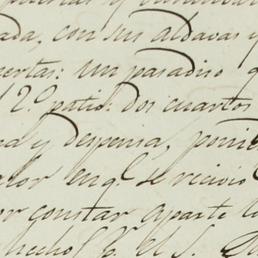 ada, con sus aldavas y
uertas: un paradiso q
2.º patio: dos cuartos
a y despensa, poni
alor en q.e se recivio
or constar aparte lo
hecho p.r el S.